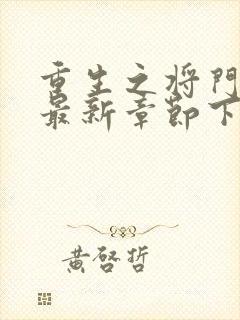 重生之将門
最新章節下
黄啓哲